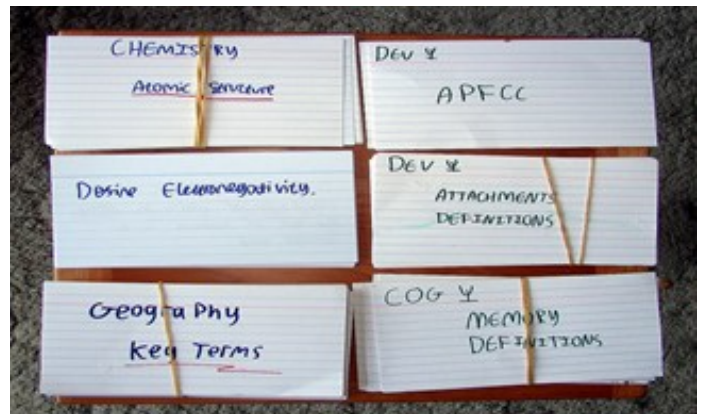 CHEMISTRY
Atomic Structure
Define Electronegativity.
Geography
Key Terms
DEV Ψ
APFCC
DEV Ψ
ATTACHMENTS
DEFINITIONS
COG Ψ
MEMORY
DEFINITIONS